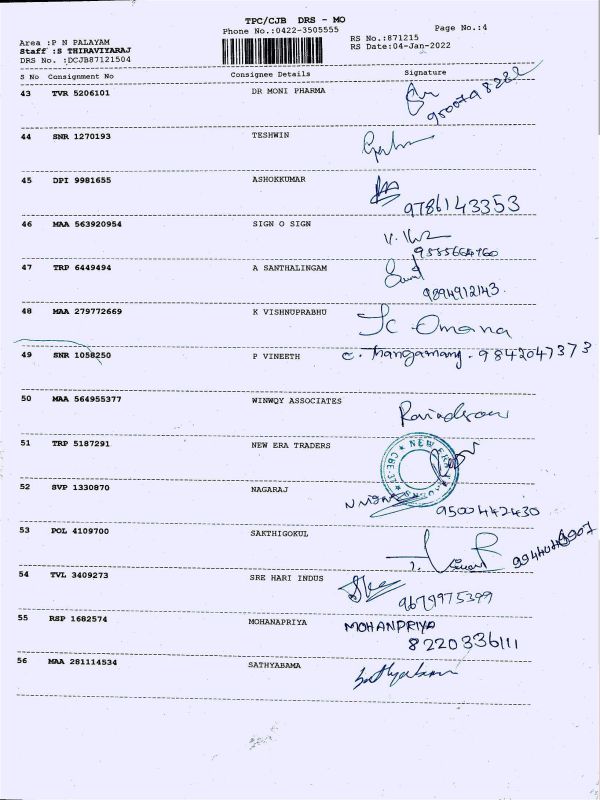 TPC/CJB DRS - MO
Phone No.:0422-3505555
Page No.:4
Area :P N PALAYAM
RS No.:871215
Staff :S THIRAVIYARAJ
RS Date:04-Jan-2022
DRS No. :DCJB87121504
S No Consignment No Consignee Details Signature
43 TVR 5206101 DR MONI PHARMA
44 SNR 1270193 TESHWIN
45 DPI 9981655 ASHOKKUMAR
9786143353
46 MAA 563920954 SIGN O SIGN
47 TRP 6449494 A SANTHALINGAM
9894912143
48 MAA 279772669 K VISHNUPRABHU
Omana
49 SNR 1058250 P VINEETH C. Thangamang. 9842047373
50 MAA 564955377 WINWQY ASSOCIATES
51 TRP 5187291 NEW ERA TRADERS
NEW ERA
52 SVP 1330870 NAGARAJ
9500442430
53 POL 4109700 SAKTHIGOKUL
54 TVL 3409273 SRE HARI INDUS
9679975399
55 RSP 1682574 MOHANAPRIYA MOHANPRIYA
8220336111
56 MAA 281114534 SATHYABAMA
Sathyabama